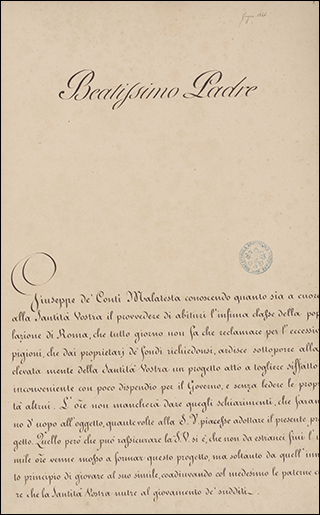 Beatissimo Padre
Giuseppe de' Conti Malatesta conoscendo quanto sia a cuore
alla Santità Vostra il provvedere di abituri l'infima classe della popo
lazione di Roma, che tutto giorno non fa che reclamare per l'eccessive
pigioni, che dai proprietarj de' fondi richiedonsi, ardisce sottoporre alla
elevata mente della Santità Vostra un progetto atto a togliere siffatto
inconveniente con poco dispendio pel Governo, e senza ledere le proprie
tà altrui. L'Ore non mancherà dare quegli schiarimenti, che faran
no d'uopo all'oggetto, quante volte alla S. V. piacesse adottare il presente pro
getto. Quello però che può rassicurare la S. V. si è, che non da estranei fini l'u
mile Ore venne mosso a formar questo progetto, ma soltanto da quell'inna
to principio di giovare al suo simile, coadiuvando col medesimo le paterne cu
re che la Santità Vostra nutre al giovamento de' sudditi.